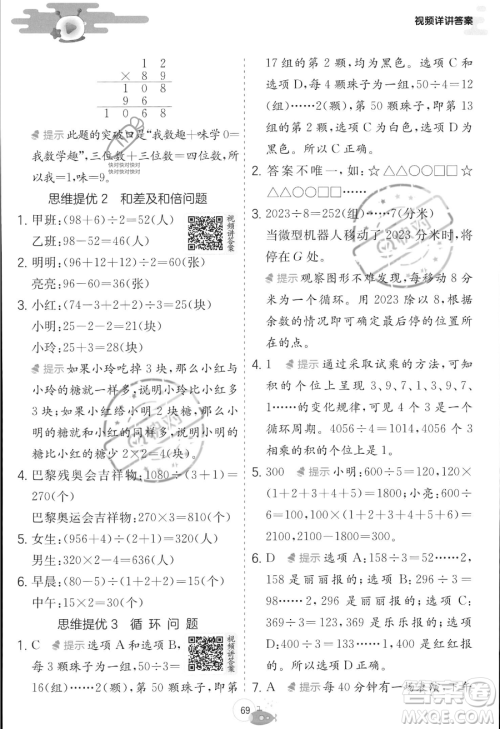 视频详讲答案
1 2
× 8 9
1 0 8
9 6
1 0 6 8
提示 此题的突破口是“我数趣+味学0=
我数学趣”,三位数+三位数=四位数,所
以我=1,味=9。
思维提优2 和差及和倍问题
1. 甲班:(98+6)÷2=52(人)
乙班:(98-6)÷2=46(人)
2. 明明:(96+60)÷2=78(张)
亮亮:(96-60)÷2=18(张)
3. 小红:(74-3+2+2)÷3=25(块)
小明:25-2=23(块)
小玲:25-2=21(块)
提示 如果小玲吃掉3块,那么小红与
小玲的糖就一样多,说明小红比小明多
2块,如果小红给小明2块糖,那么小
明的糖就和小红的同样多,说明小红比
小明多2×2=4(块)。
4. 巴黎残奥会吉祥物:1080÷(3+1)=
270(个)
巴黎奥运会吉祥物:270×3=810(个)
5. 女生:(956+4)÷(2+1)=320(人)
男生:320×2-4=636(人)
6. 早晨:(80-5)÷(2+1+2)=15(个)
中午:15×2=30(个)
思维提优3 循环问题
视频讲答案
1. C 提示 选项A和选项B,
每3颗珠子为一组,50÷3=
16(组)……2(颗),第50颗珠子,即第
17组的第2颗,均为黑色。选项C和选
项D,每4颗珠子为一组,50÷4=
12(组)……2(颗),第50颗珠子,即第13
组的第2颗,选项C为白色,选项D为黑
色。所以选C正确。
2. 答案不唯一,如:☆△△○○□□☆
△△○○□□
3. 2023÷8=252(组)……7(分米)
当微型机器人移动了2023分米时,将
停在G处。
提示 观察图形不难发现,每移动8分
米为一个循环。用2023除以8,根据
余数的情况可以知道最后停的位置所
在的点。
4. 1 提示 通过采取试乘的方法,可知
积的个位上呈现出3,9,7,1,3,9,7,1,
…的变化规律,可知每4个3相乘是一个
循环周期。4056÷4=1014,4056个3
相乘的积的个位上是1。
5. 300 提示 小明:600÷5=120,120×
(1+2+3+4+5)=1800;小亮:600÷
6=100,100×(1+2+3+4+5+6)=
2100,2100-1800=300。
6. D 提示 选项A:225÷3=75,应
是丽丽报的;选项B:296÷3=
98……2,是乐乐报的;选项C:
369÷3=123,
7. A 提示 每40分钟有一场表演,上午
69